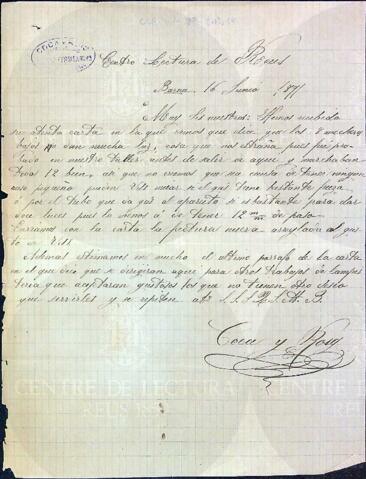 COCA Y ROIG
Centro Lectura de Reus
Barna 16 Junio 1891
Muy Sres nuestros: Hemos recibido
su atenta carta en la que vemos que dicen que los 8 mecheros
bajos no dan mucha luz, cosa que nos estraña pues fué pro
bado en nuestro taller antes de salir de aqui y marchaban
todos 12 bien, asi que no creemos que sea causa de tener ningun
paso pequeño, pueden Vds mirar si el gas tiene bastante fuerza
ó por el tubo que da gas al aparato si es bastante para dar
doce luces pues lo menos á de tener 12 m/m de paso
Enviamos con la carta la factura nueva arreglada al gus
to de Vds
Ademas estimamos en mucho el ultimo parrafo de la carta
en el que dice que se dirigiran aqui para otros trabajos de lampis
teria que aceptaran gustosos los que no tienen otro deseo
que servirles y se repiten att S. S. Q. S. M. B.
Coca y Roig
CENTRE DE LECTURA
REUS 1859